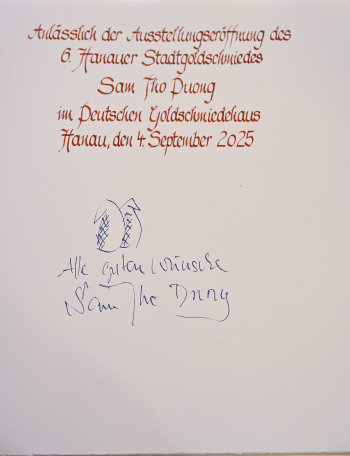 Anlässlich der Ausstellungseröffnung des
6. Hanauer Stadtgoldschmiedes
Sam Tho Duong
im Deutschen Goldschmiedehaus
Hanau, den 4. September 2025
Alle guten Wünsche
Sam Tho Duong